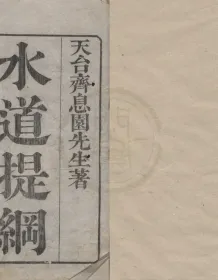 天台齊息園先生著
水道提綱